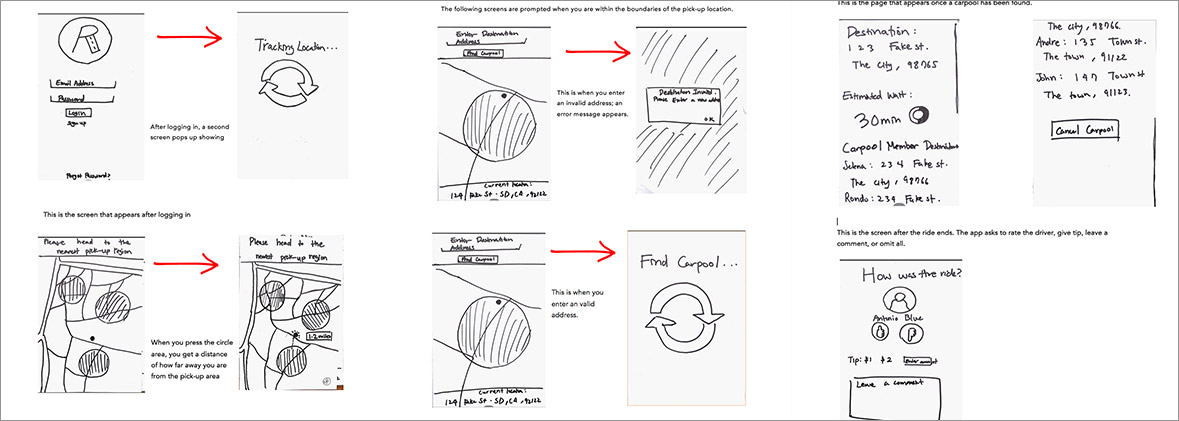 R
Email Address
Password
Login
Sign up
Forgot Password?
Tracking Location...
After logging in, a second
screen pops up showing
This is the screen that appears after logging in
Please head to the
nearest pick-up region
Please head to the
nearest pick-up region
1.2 miles
When you press the circle
area, you get a distance
of how far away you are
from the pick-up area
The following screens are prompted when you are within the boundaries of the pick-up location.
Enter Destination
Address
Find Carpool
Current Location:
124 Fake St - SD, CA, 92122
This is when you enter
an invalid address; an
error message appears.
Destination Invalid.
Please Enter a new
OK
Enter Destination
Address
Find Carpool
Current Location:
124 Fake St - SD, CA, 92122
This is when you
enter an valid
address.
Find Carpool...
This is the page that appears once a carpool has been found.
Destination:
123 Fake st.
The city, 98765
Estimated Wait:
30min
Carpool Member Destinations
Selena: 234 Fake st.
The city, 98766
Rondo: 234 Fake st.
The city, 98766.
Andre: 135 Town st.
The town, 91122
John: 147 Town st
The town, 91123.
Cancel Carpool
This is the screen after the ride ends. The app asks to rate the driver, give tip, leave a
comment, or omit all.
How was the ride?
Antonio Blue
Tip: $1 $2 Enter amount
Leave a comment